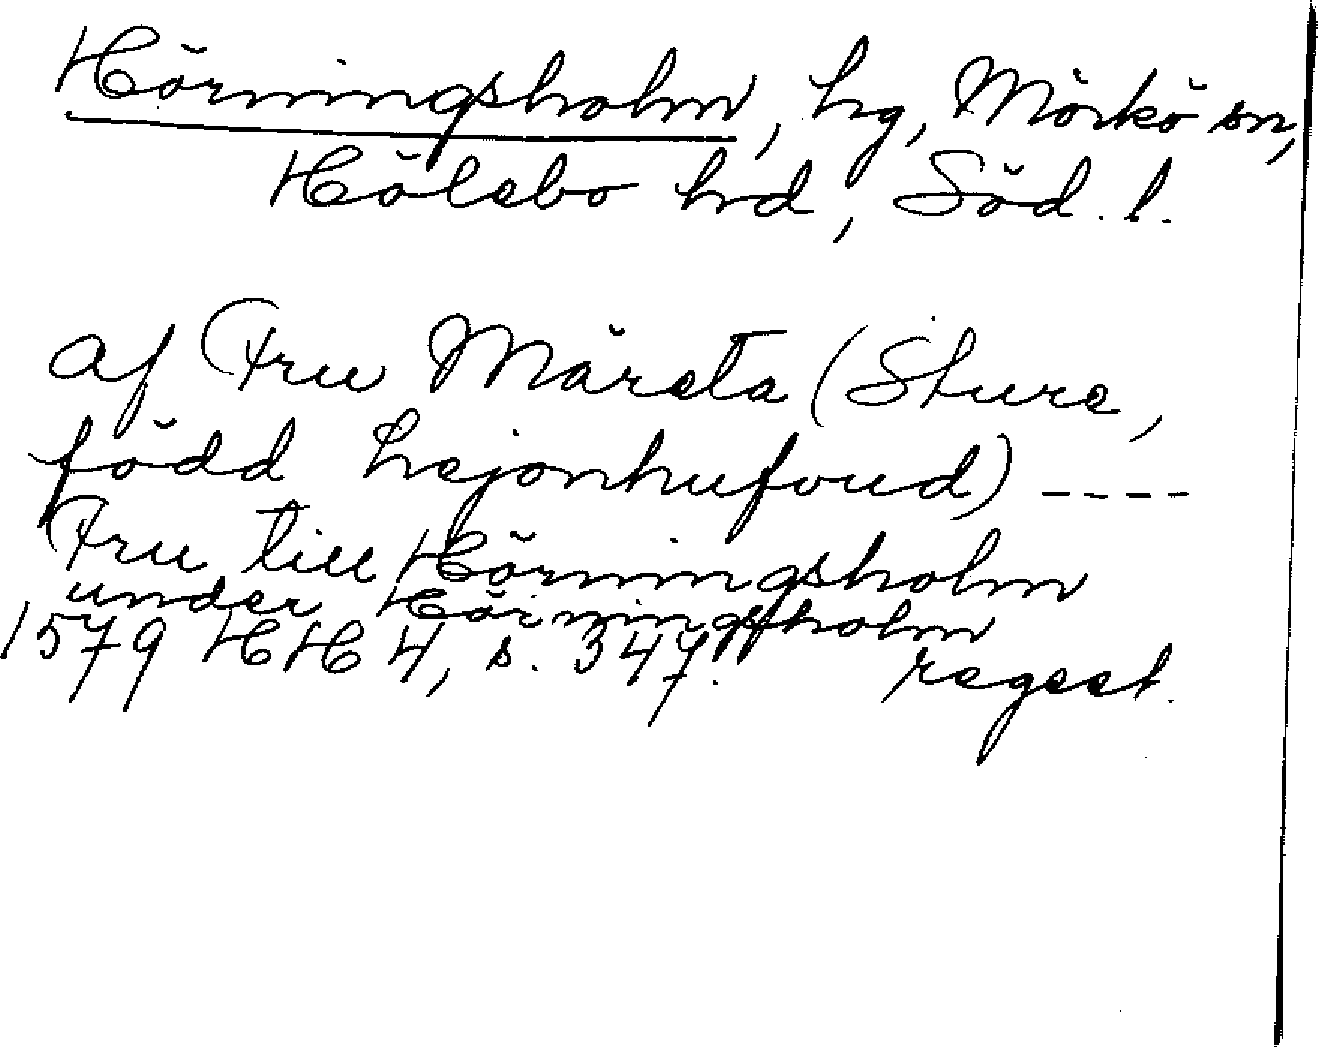 Hörningsholm, hg, Mörkö sn,
Hölebo hrd, Söd. l.
af Fru Märeta (Sture,
född Lejonhufvud) ----
Fru till Hörningsholm
under Hörningsholm
1579 HH 4, s. 347. regest.